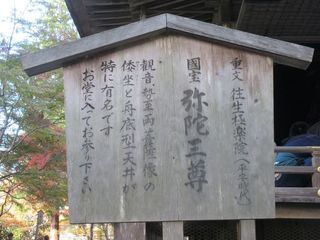 重文 往生極楽院(平安時代)
國宝 弥陀三尊
観音勢至両菩薩像の
倭坐と舟底型天井が
特に有名です
お堂に入ってお参り下さい